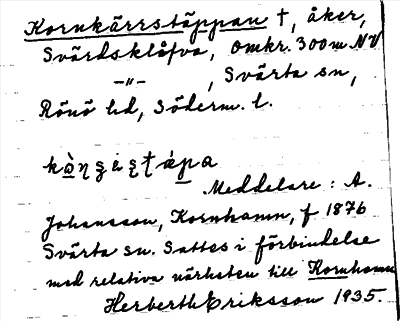 Kornkärrstäppan †, åker,
Svärdsklåfva, omkr. 300 m NV
–"– , Svärta sn,
Rönö hd, Söderm. l.
Meddelare: A.
Johansson, Kornhamn, f 1876
Svärta sn. Sattes i förbindelse
med relativa närheten till Kornhamn
Herberth Eriksson 1935.